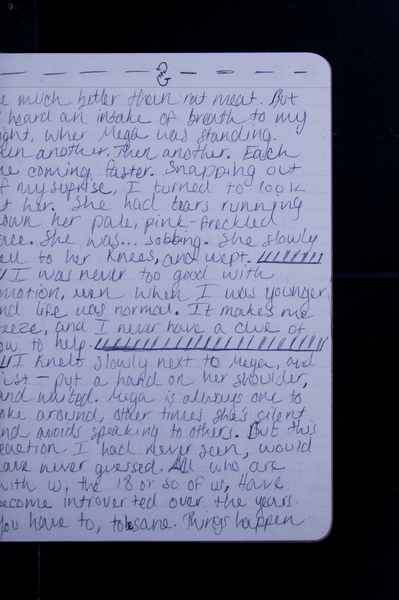 e much better than rat meat. But
I heard an intake of breath to my
ight, wher Mega was standing.
hen another. Then another. Each
ne coming faster. Snapping out
f my suprise, I turned to look
t her. She had tears running
own her pale, pink-freckled
ace. She was... sobbing. She slowly
ell to her knees, and wept.
I was never too good with
motion, even when I was younger,
nd life was normal. It makes me
reeze, and I never have a clue of
ow to help.
I knelt slowly next to Mega, and
just - put a hand on her shoulder,
and waited. Mega is always one to
oke around, other times she's silent
nd avoids speaking to others. But this
reaction I had never seen, would
ave never guessed. All who are
with w, the 18 or so of us, Have
become introverted over the years.
You have to, to sane. Things happen